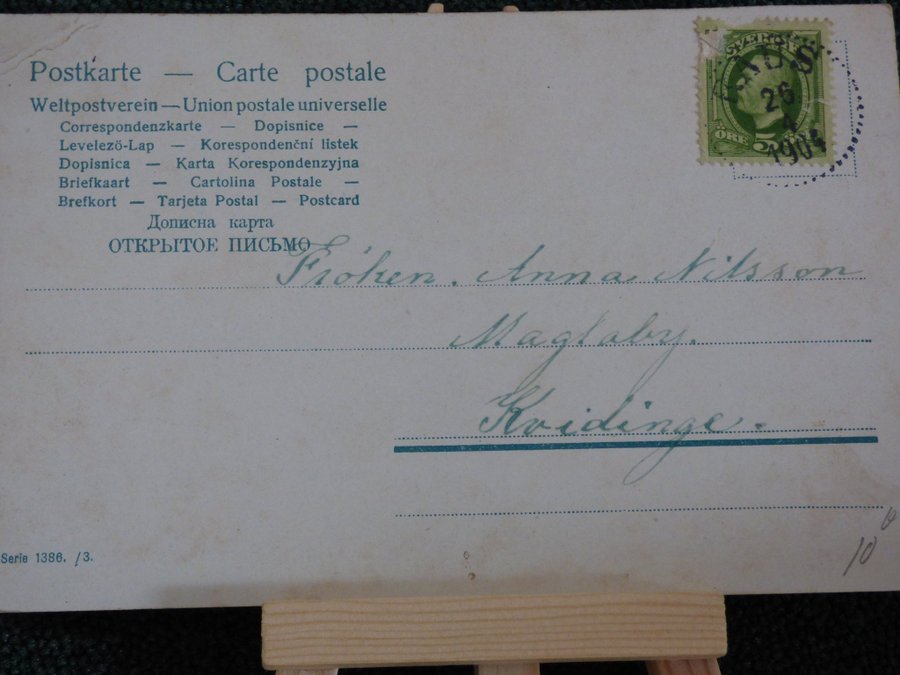 Postkarte — Carte postale
Weltpostverein — Union postale universelle
Correspondenzkarte — Dopisnice —
Levelező-Lap — Korespondenční listek
Dopisnica — Karta Korespondenzyjna
Briefkaart — Cartolina Postale —
Brefkort — Tarjeta Postal — Postcard
Дописна карта
ОТКРЫТОЕ ПИСЬМО
SVERIGE
26
1
1904
ÖRE 5
Fröken. Anna Nilsson
Magtaby.
Kvidinge.
Serie 1386. /3.
10